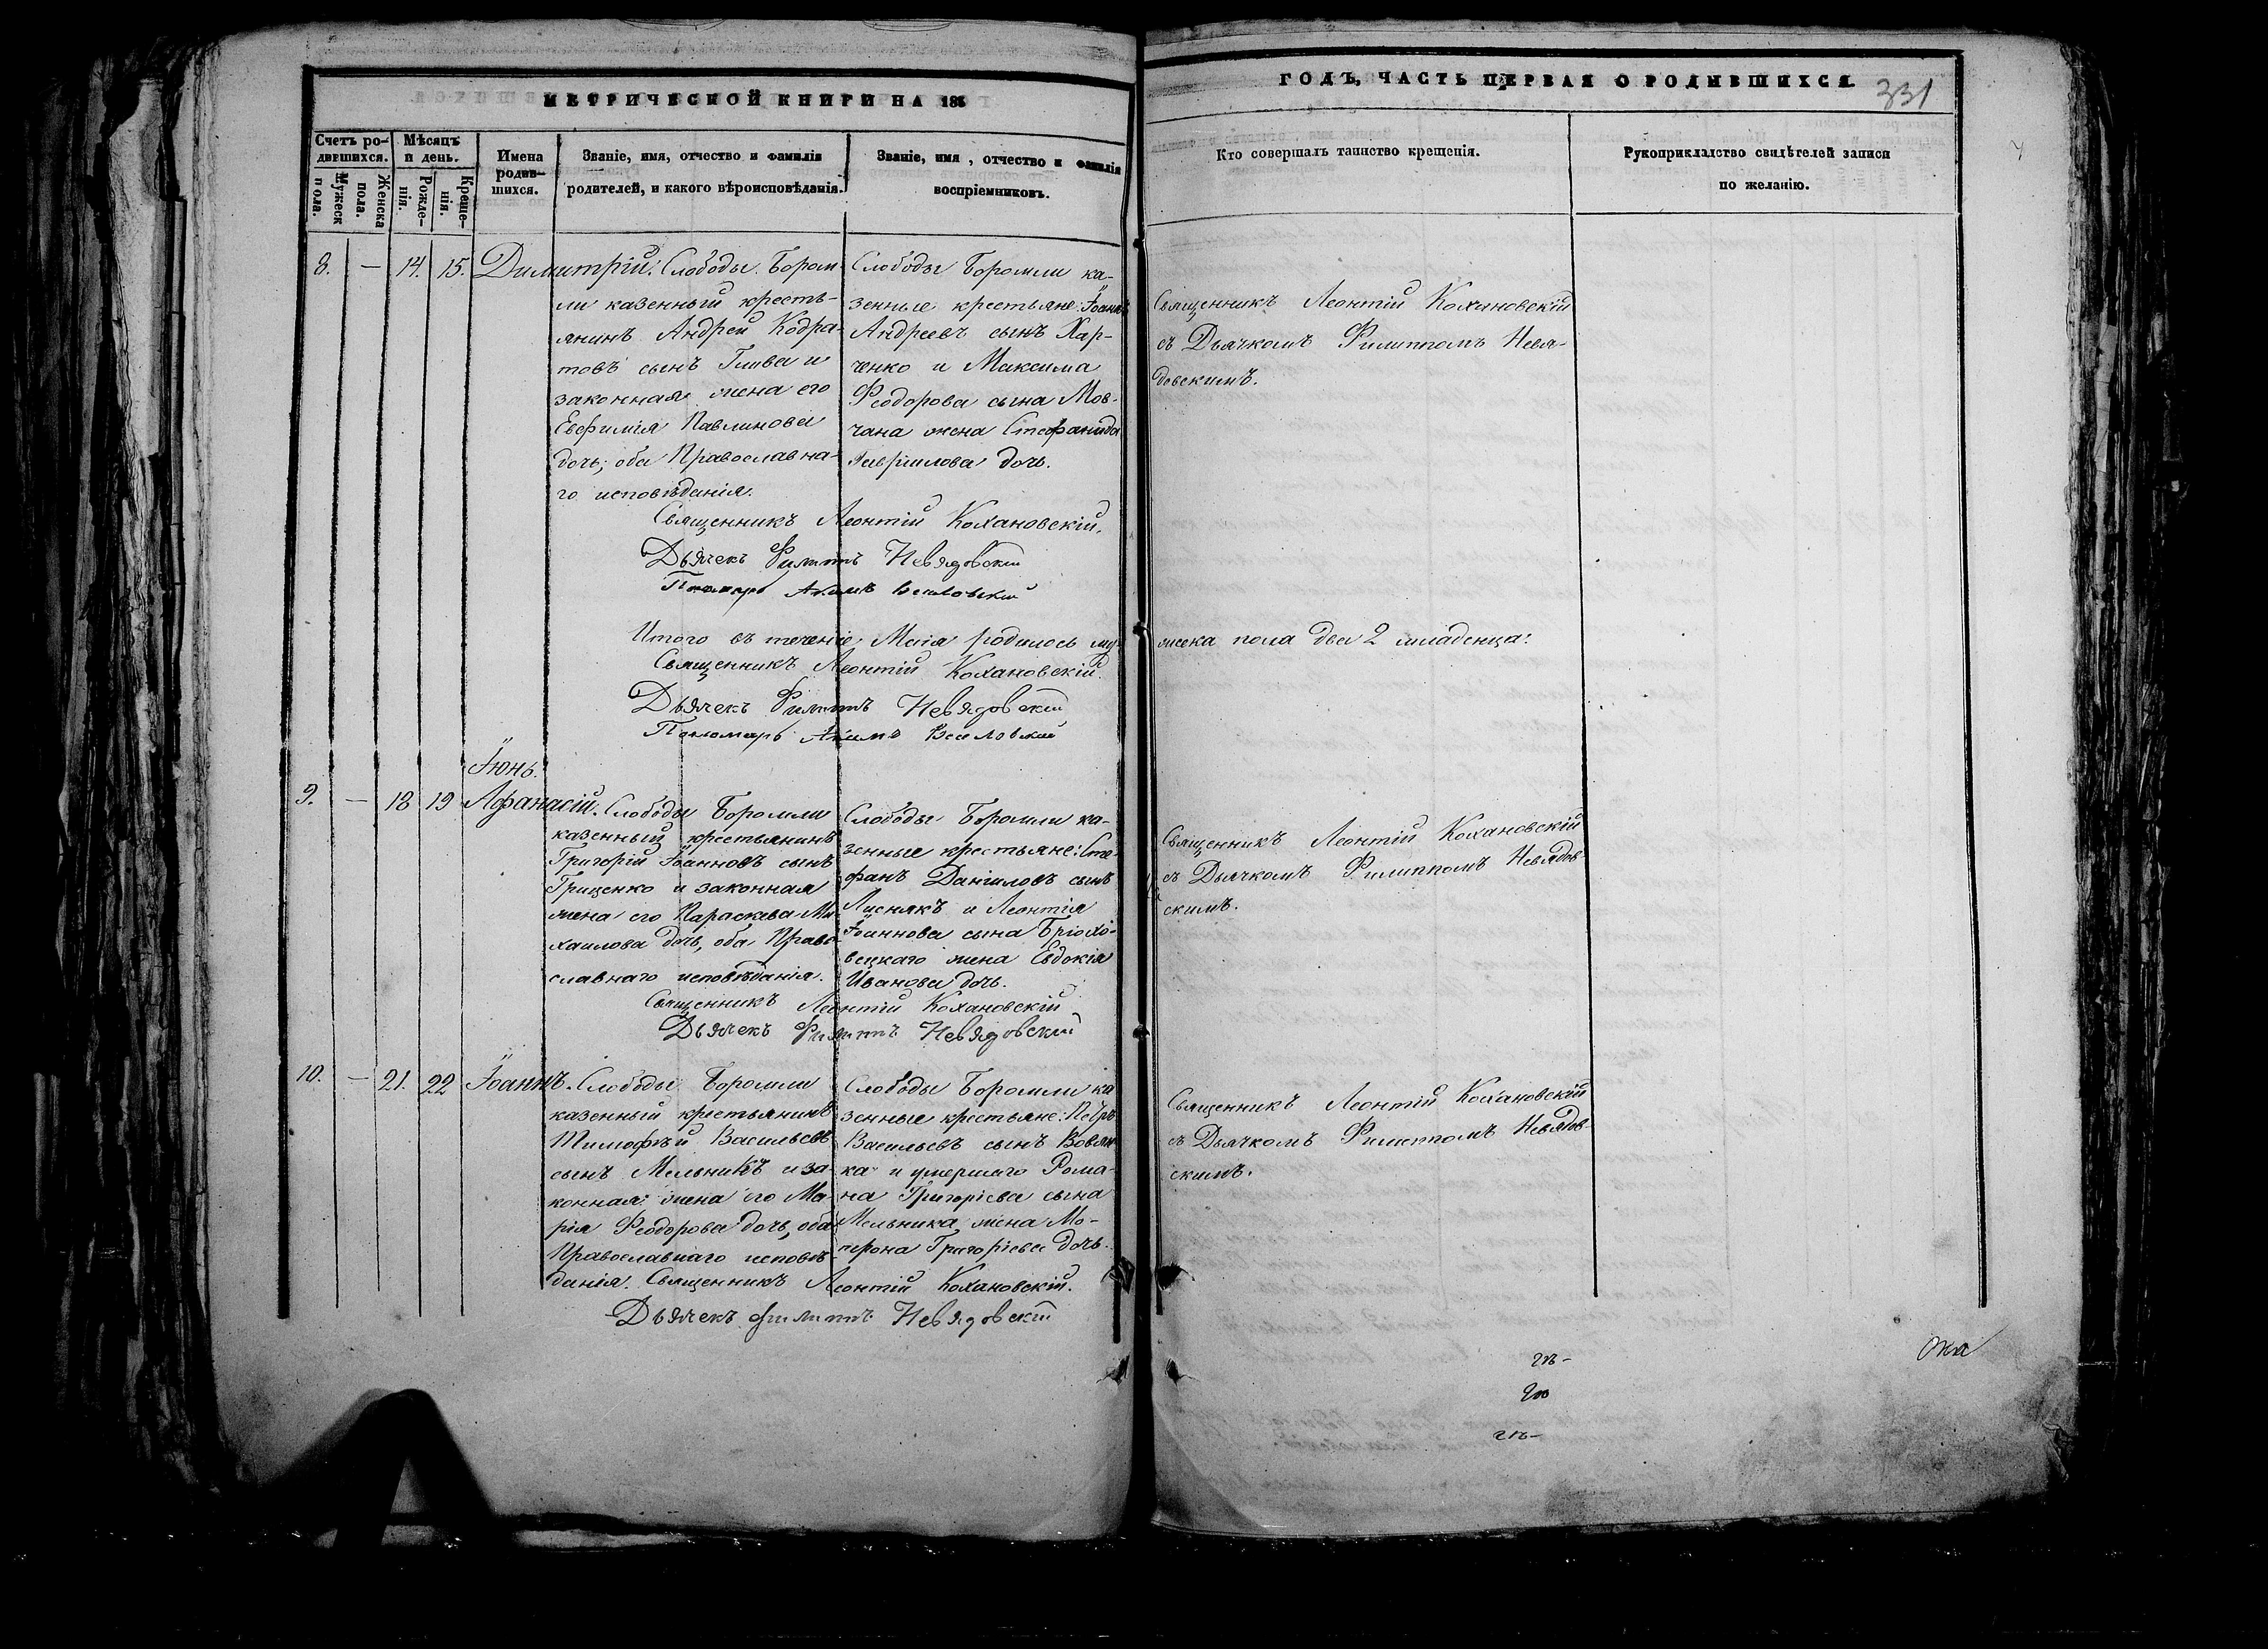 МЕТРИЧЕСКОЙ КНИГИ НА 185
ГОДЪ, ЧАСТЬ ПЕРВАЯ О РОДИВШИХСЯ.
331
Счетъ ро-
дившихся.
Мужеск
пола.
Женска
пола.
Мѣсяцъ
и день.
Рожде-
нія.
Креще-
нія.
Имена
родив-
шихся.
Званіе, имя, отчество и фамилія
родителей, и какого вѣроисповѣданія.
Званіе, имя, отчество и фамилія
воспріемниковъ.
Кто совершалъ таинство крещенія.
Рукоприкладство свидѣтелей записи
по желанію.
8. — 14. 15. Димитрій.
Слободы Бором-
ли казенный кресть-
янинъ Андрей Кодра-
товъ сынъ Глива и
законная жена его
Евфимія Павлинова
дочь; оба Православна-
го исповѣданія.
Слободы Боромли ка-
зенные крестьяне: Іоаннъ
Андреевъ сынъ Хар-
ченко и Максима
Феодорова сына Мов-
чана жена Стефанида
Гавріилова дочь.
Священникъ Леонтій Кохановскій
съ Дьячкомъ Филиппомъ Невя-
довскимъ.
Священникъ Леонтій Кохановскій.
Дьячекъ Филиппъ Невядовскій
Пономарь Акимъ Веселовскій
Итого въ теченіе Маія родилось му-
жеска пола два 2 младенца.
Священникъ Леонтій Кохановскій.
Дьячекъ Филиппъ Невядовскій
Пономарь Акимъ Веселовскій
Іюнь.
9. — 18 19 Афанасій.
Слободы Боромли
казенный крестьянинъ
Григорій Іоанновъ сынъ
Гриценко и законная
жена его Параскева Ми-
хаилова дочь, оба Право-
славнаго исповѣданія.
Слободы Боромли ка-
зенные крестьяне: Сте-
фанъ Даніиловъ сынъ
Лиснякъ и Леонтія
Іоаннова сына Бріохо-
вецкаго жена Евдокія
Иванова дочь.
Священникъ Леонтій Кохановскій
съ Дьячкомъ Филиппомъ Невядов-
скимъ.
Священникъ Леонтій Кохановскій
Дьячекъ Филиппъ Невядовскій
10. — 21. 22 Іоаннъ.
Слободы Боромли
казенный крестьянинъ
Тимофѣй Васильевъ
сынъ Мельникъ и за-
конная жена его Ма-
рія Феодорова дочь, оба
Православнаго исповѣ-
данія.
Слободы Боромли ка
зенные крестьяне: Петръ
Васильевъ сынъ
ка и умершаго Рома-
на Григоріева сына
Мельника жена Мо-
трона Григоріева дочь.
Священникъ Леонтій Кохановскій
съ Дьячкомъ Филиппомъ Невядов
скимъ.
Священникъ Леонтій Кохановскій.
Дьячекъ Филиппъ Невядовскій